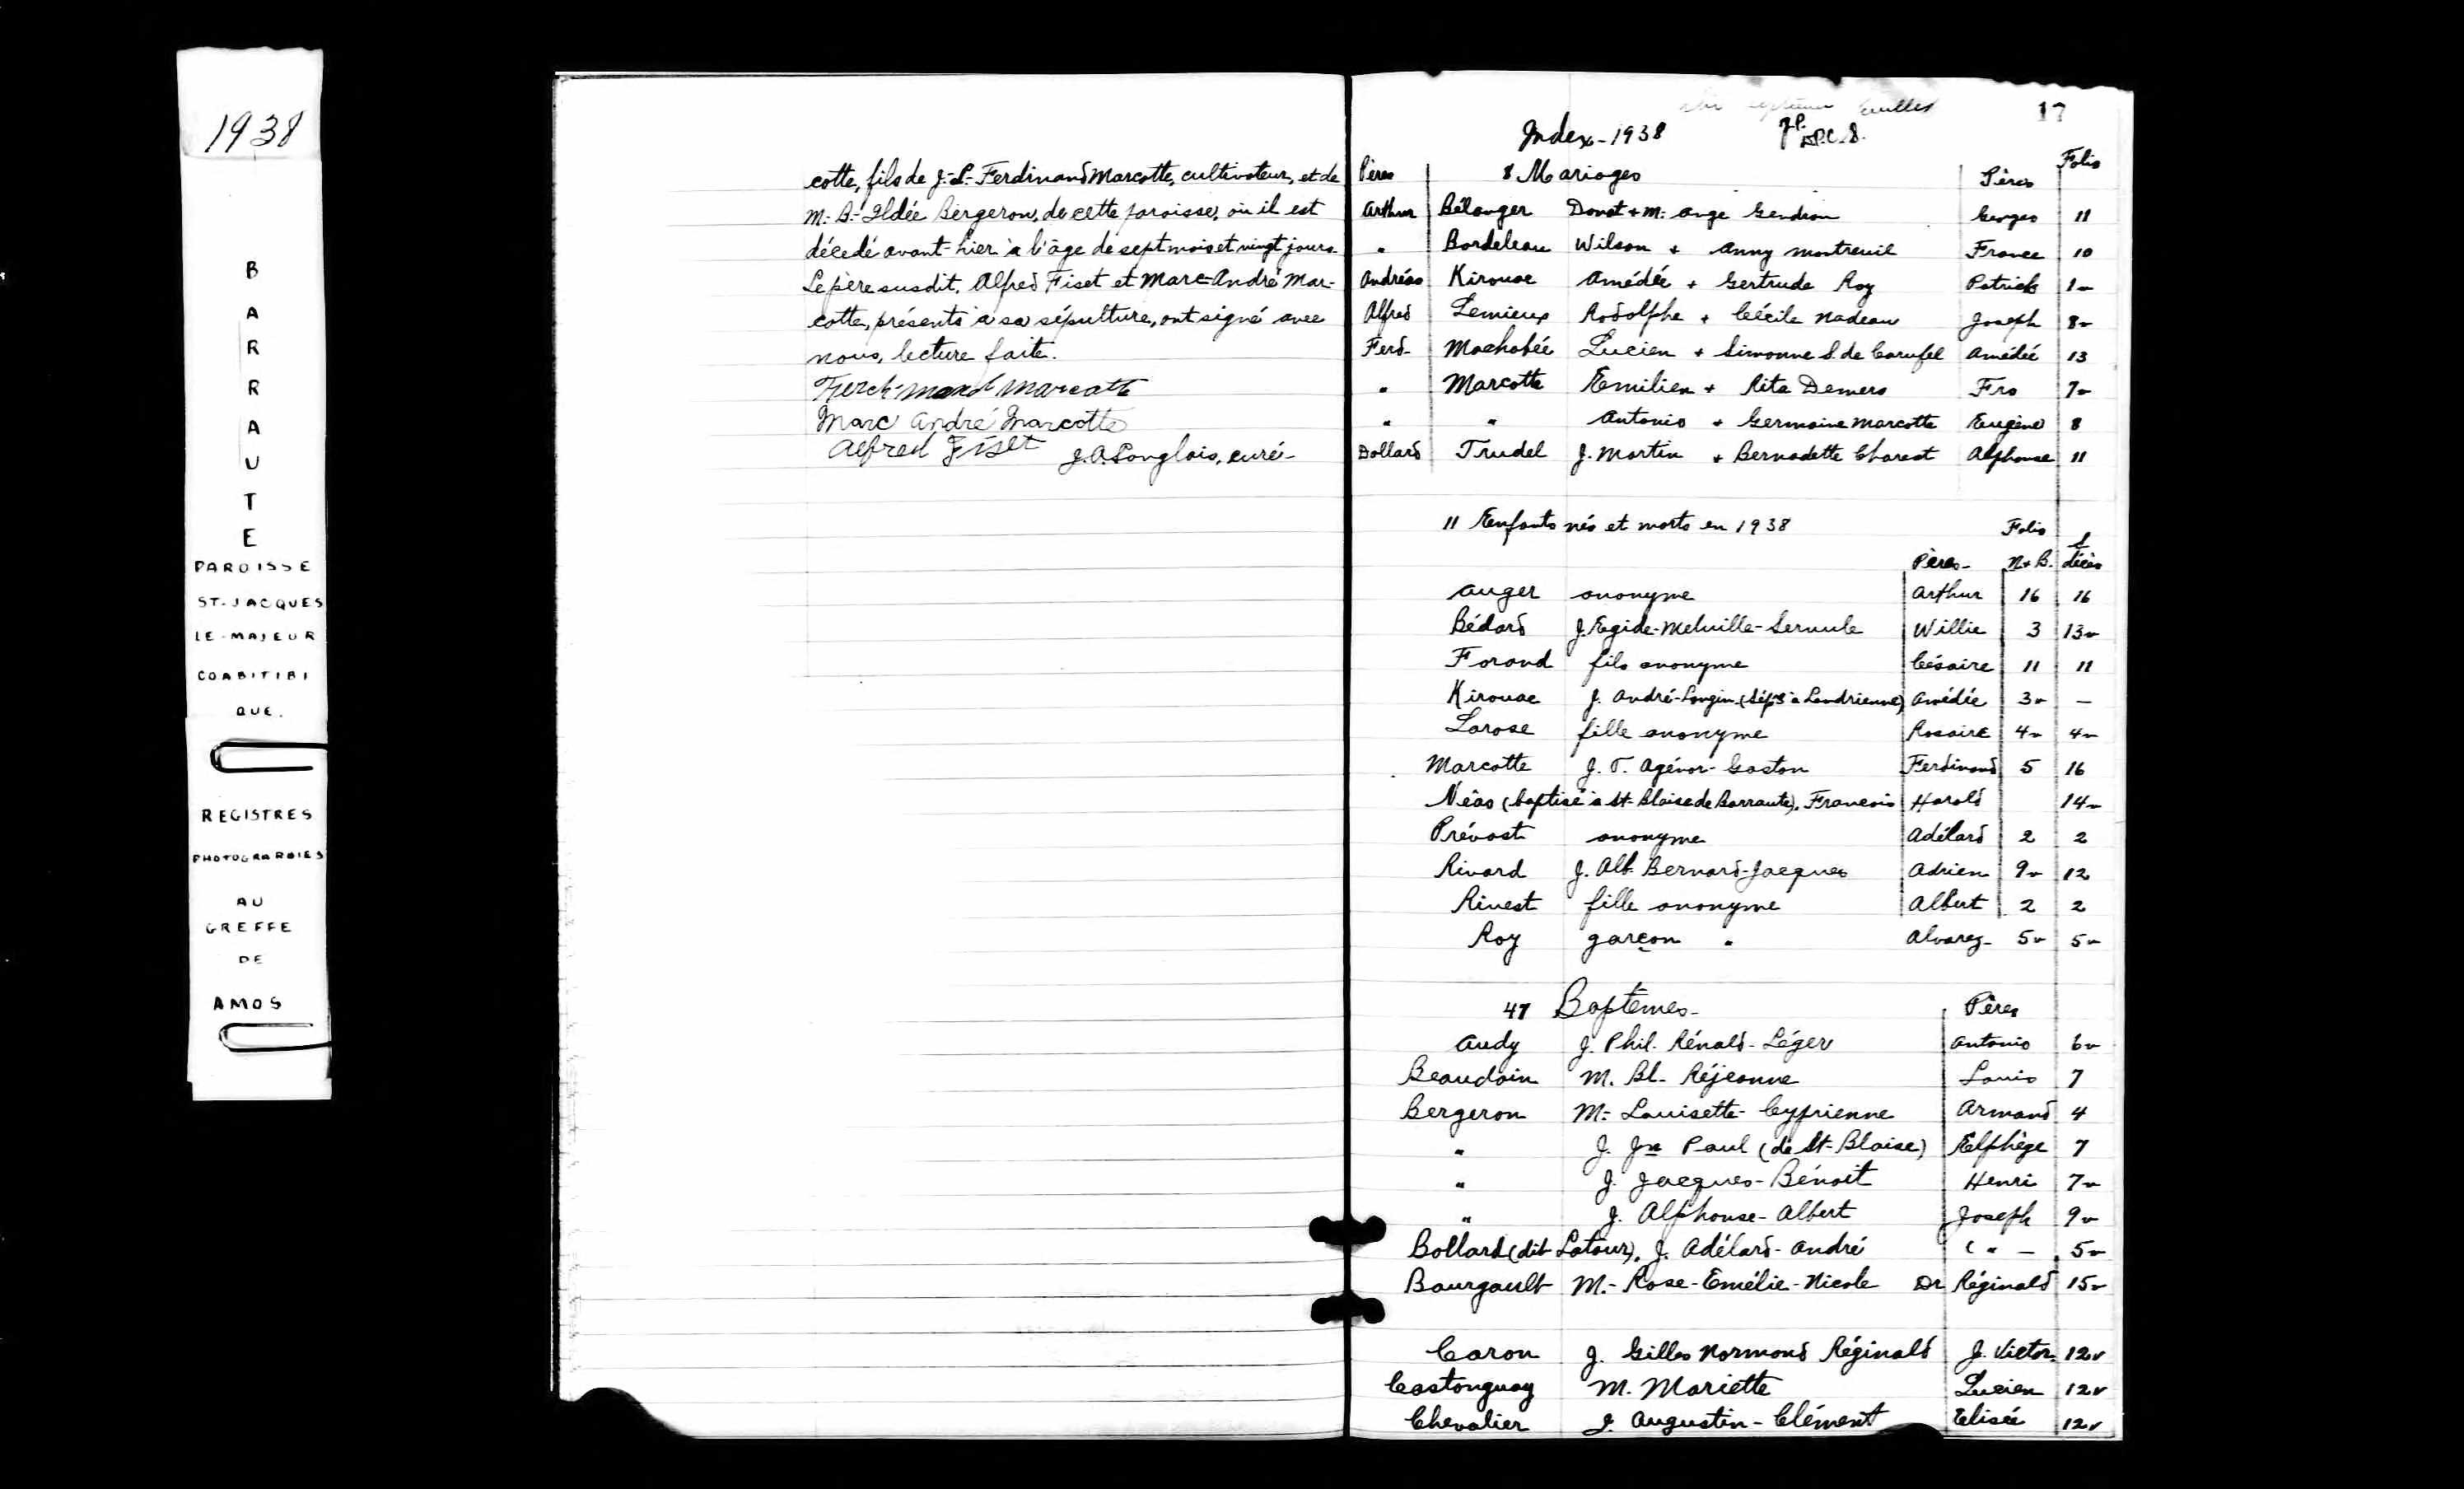 1938
B
A
R
R
A
U
T
E
PAROISSE
ST-JACQUES
LE-MAJEUR
COABITIBI
QUE.
REGISTRES
PHOTOGRAPHIES
AU
GREFFE
DE
AMOS
cotte, fils de J.-L.-Ferdinand Marcotte, cultivateur, et de
M.-A.-Ildée Bergeron, de cette paroisse, où il est
décedé avant-hier à l'âge de sept mois et vingt jours.
Le père susdit, Alfred Fiset et Marc-André Mar-
cotte, présents à sa sépulture, ont signé avec
nous, lecture faite.
Marcotte
Marc André Marcotte
Alfred Fiset J.A. Langlois, curé-
feuillet 17
Index-1938 J.P. D.P.C.S.
Pères 8 Mariages Pères Folio
Arthur Bélanger Donat + M. Ange Gendron Georges 11
" Bordeleau Wilson + Anny Montreuil France 10
Andréas Kirouac Amédée + Gertrude Roy Patrick 1v
Alfred Lemieux Rodolphe + Cécile Nadeau Joseph 8v
Ferd- Machabée Lucien + Simonne S. de Carufel Amédée 13
" Marcotte Emilien + Rita Demers Frs 7v
" " Antonio + Germaine Marcotte Eugène 8
Dollard Trudel J. Martin + Bernadette Charest Alphonse 11
11 Enfants nés et morts en 1938 Folio
Pères- N+B. S décès
Auger anonyme Arthur 16 16
Bédard J. Egide-Melville-Servule Willie 3 13v
Forand fils anonyme Césaire 11 11
Kirouac J. André-Longin (Sép. à Landrienne) Amédée 3v -
Larose fille anonyme Rosaire 4v 4v
Marcotte J. T. Agénor-Gaston Ferdinand 5 16
Néas (baptisé à St-Blaise de Barraute), Francois Harold 14v
Prévost anonyme Adélard 2 2
Rivard J. Alb. Bernard-Jacques Adrien 9v 12
Rivest fille anonyme Albert 2 2
Roy garçon " Alvarez- 5v 5v
47 Baptêmes- Pères
Audy J. Phil. Rénald-Léger Antonio 6v
Beaudoin M. Bl- Réjeanne Louis 7
Bergeron M.- Louisette-Cyprienne Armand 4
" J. Jn Paul (de St-Blaise) Elphège 7
" J. Jacques-Bénoit Henri 7v
" J. Alphonse-Albert Joseph 9v
Bollard (dit Latour), J. Adélard-André ( " - 5v
Bourgault M.-Rose-Emélie-Nicole Dr Réginald 15v
Caron J. Gilles Normand Réginald J. Victor. 12v
Castonguay M. Mariette Lucien 12v
Chevalier J. Augustin-Clément Elisée 12v